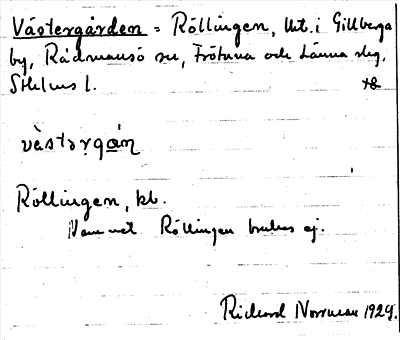 Västergården = Röllingen, Ut. i Gillberga
by, Rådmansö sn, Frötuna och Länna skg,
Sthlms l.
västərgån
Röllingen, kb.
Namnet Röllingen brukas ej.
Richard Norrman 1929.